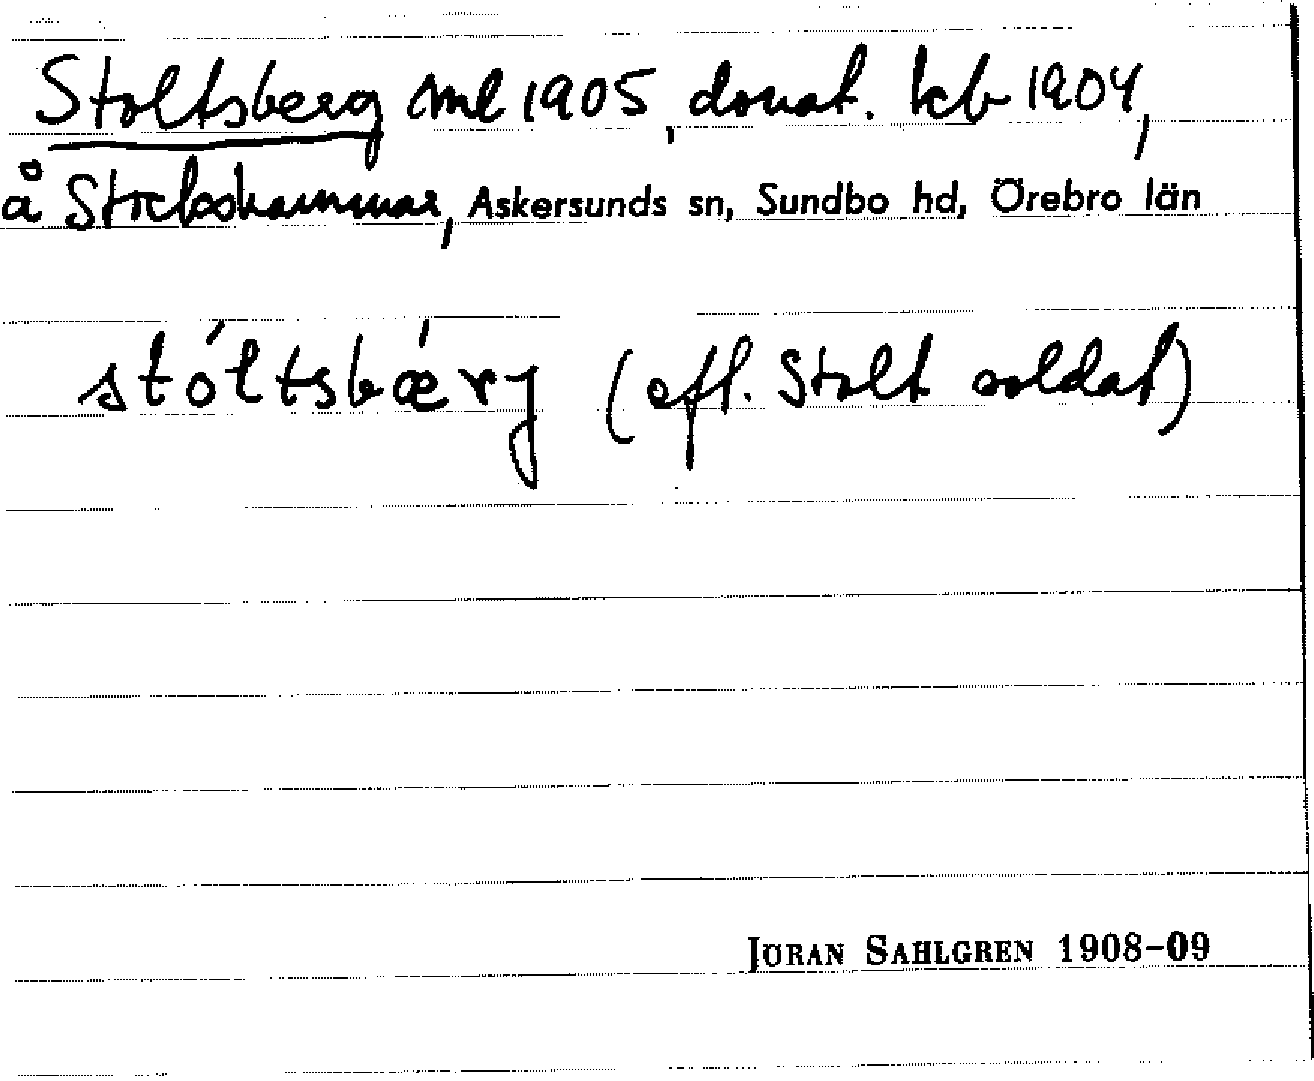 Stoltsberg ml 1905, donat. kb 1904,
å Stichshammar, Askersunds sn, Sundbo hd, Örebro län
stóltsbǽrj (eft. Stolt soldat)
JÖRAN SAHLGREN 1908-09